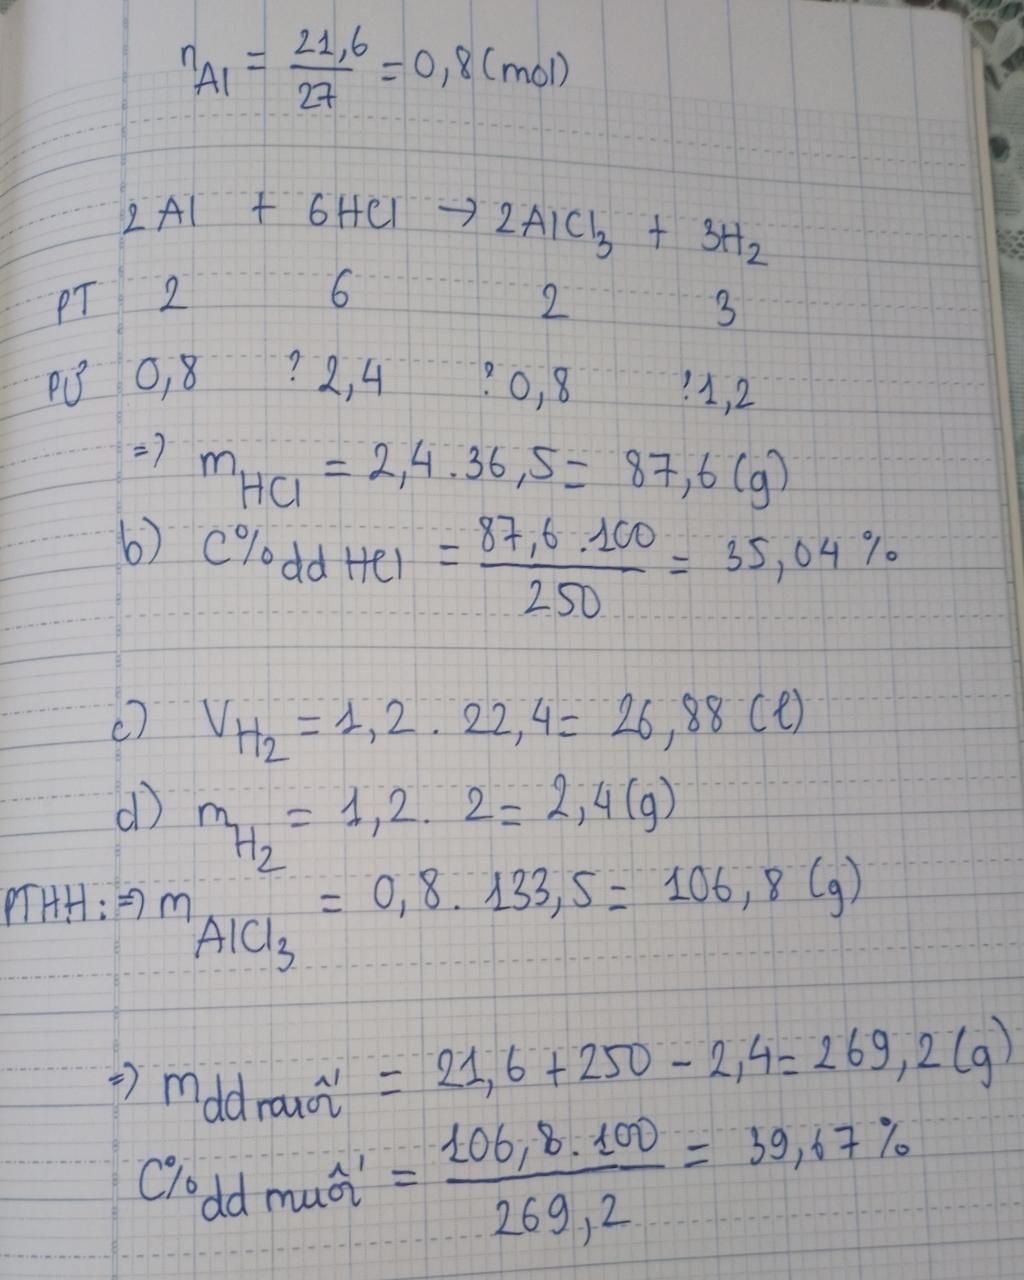 nAl = 21,6/27 = 0,8 (mol)
2Al + 6HCl → 2AlCl3 + 3H2
PT 2 6 2 3
PƯ 0,8 ? 2,4 ? 0,8 ? 1,2
=> mHCl = 2,4 . 36,5 = 87,6 (g)
b) C% dd HCl = 87,6 . 100/250 = 35,04 %
c) VH2 = 1,2 . 22,4 = 26,88 (l)
d) mH2 = 1,2 . 2 = 2,4 (g)
PTHH: => mAlCl3 = 0,8 . 133,5 = 106,8 (g)
=> mdd muối = 21,6 + 250 - 2,4 = 269,2 (g)
C% dd muối = 106,8 . 100/269,2 = 39,67 %